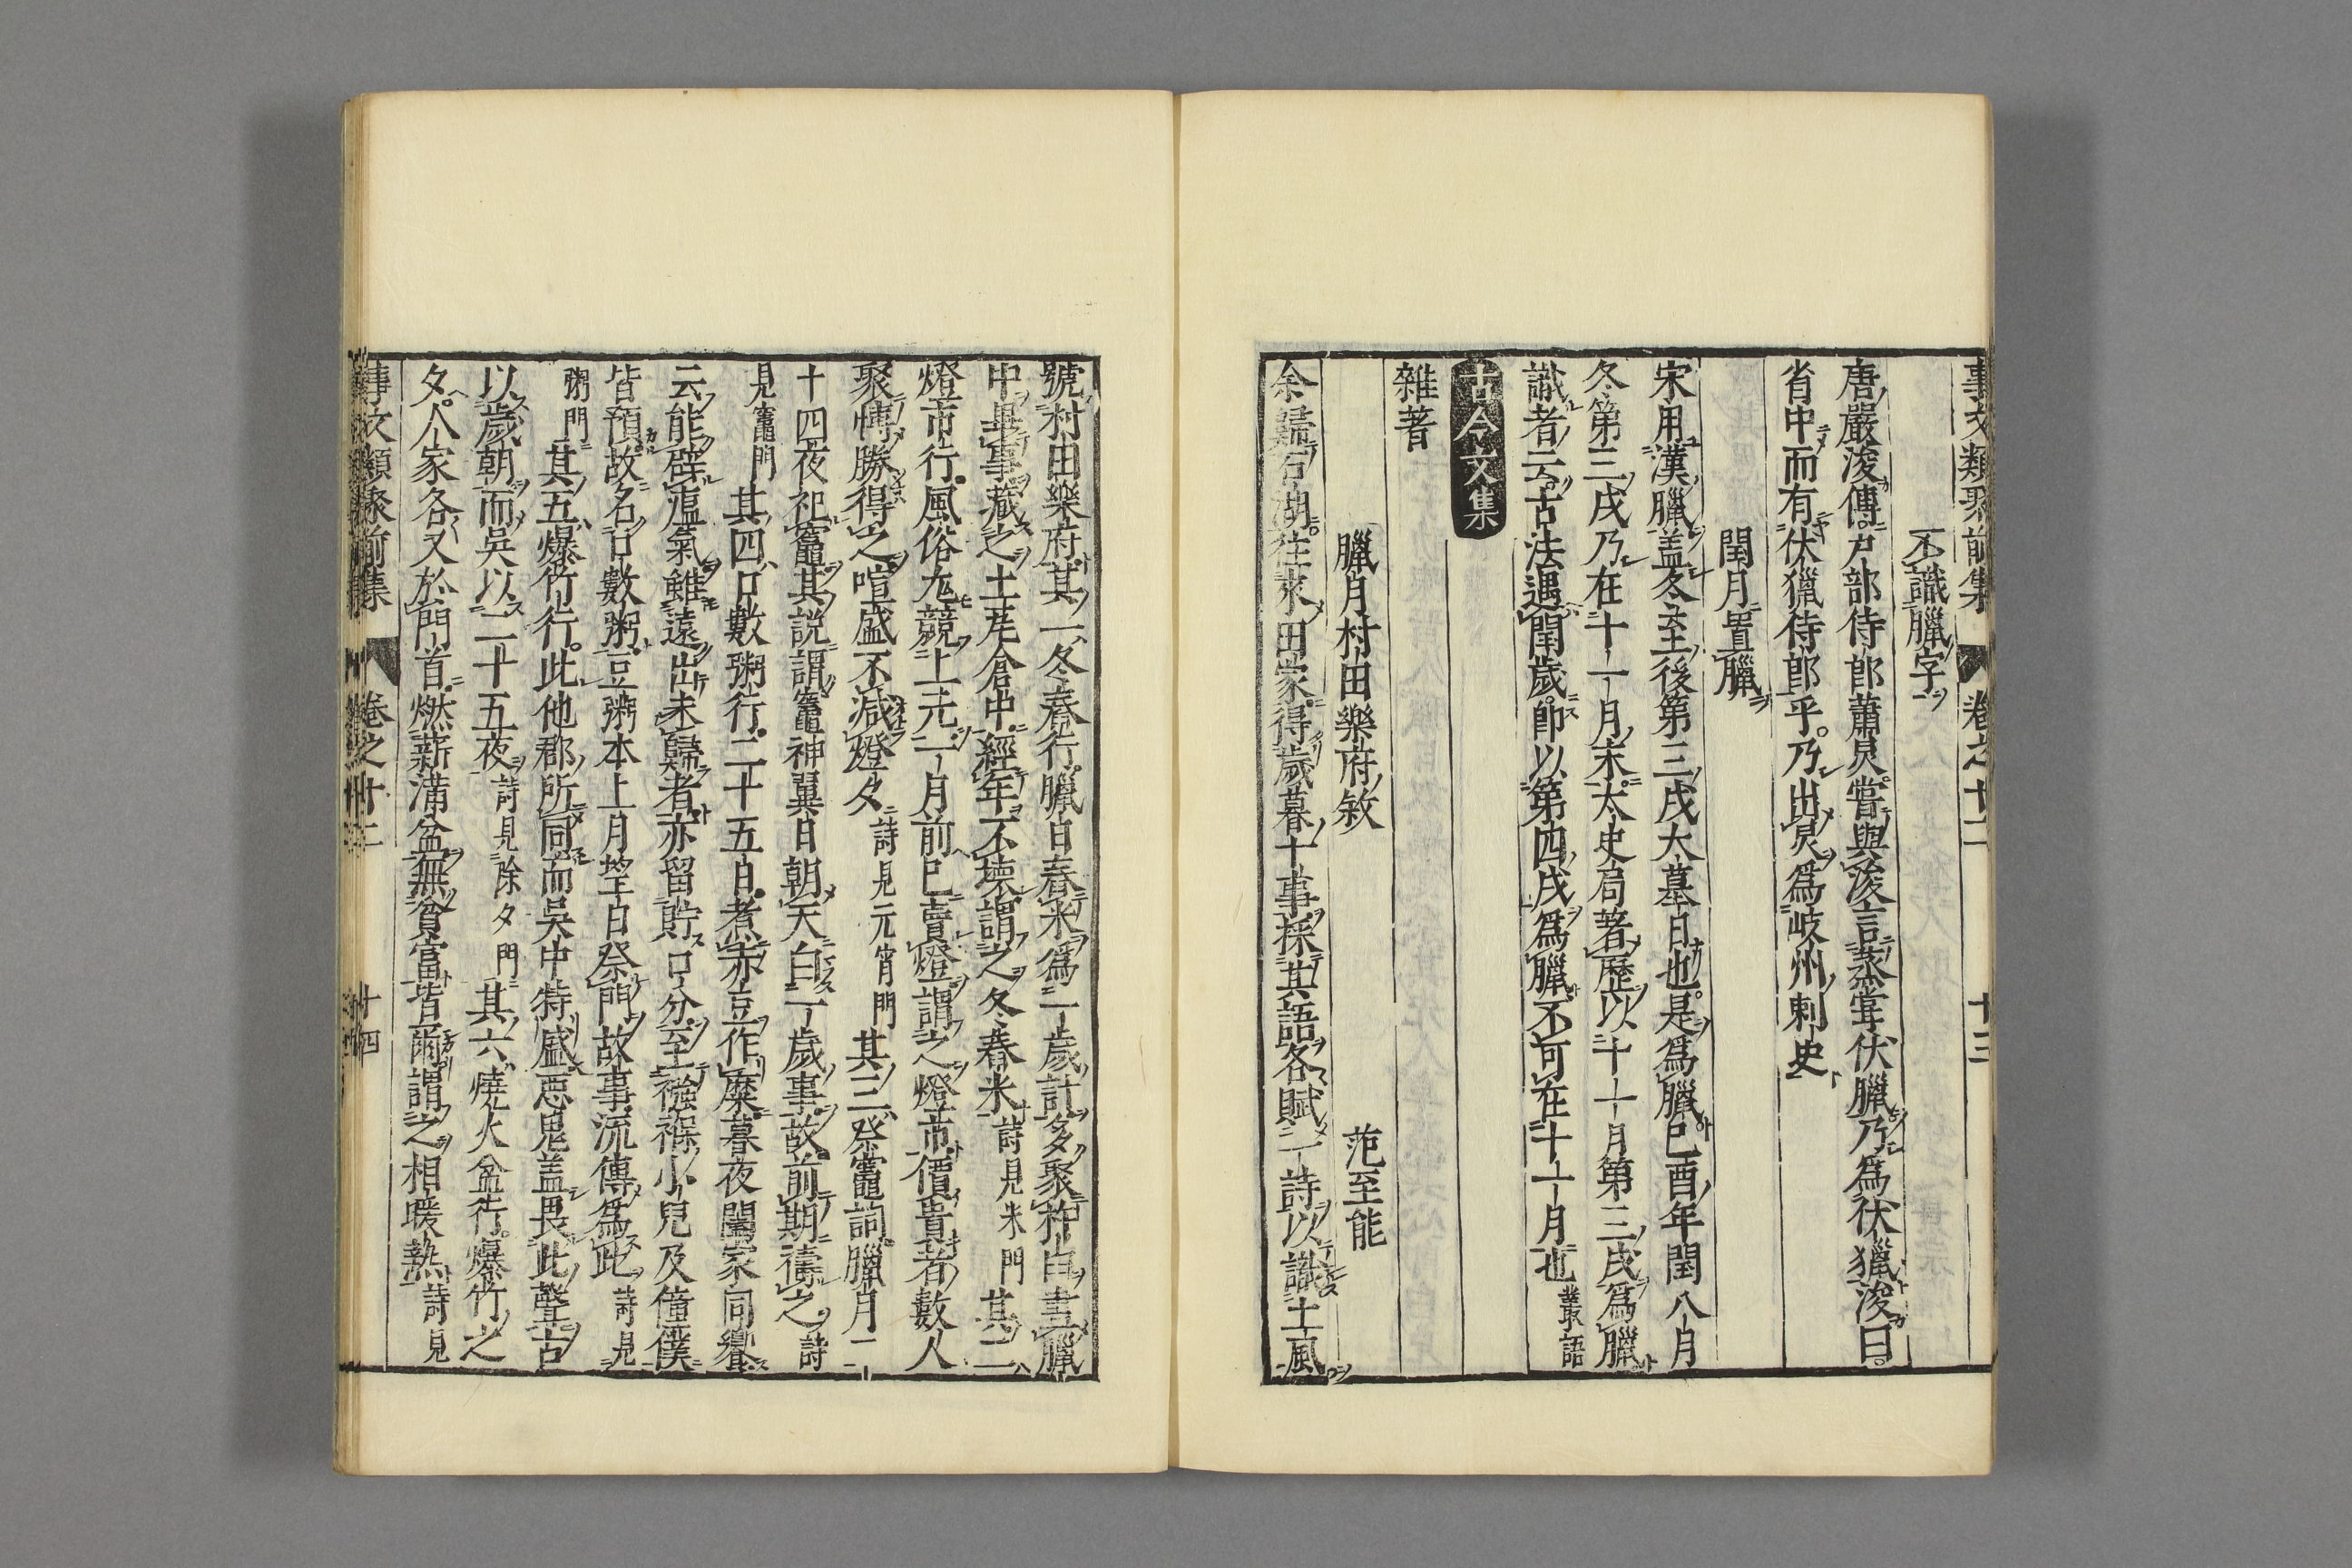 事文類聚前集 卷之十二 十三
不識臘字
唐嚴浚傳戶部侍郎蕭炅嘗與浚言蒸嘗伏臘乃爲伏獵浚曰
省中而有伏獵侍郎乎乃出炅爲岐州刺史
閏月置臘
宋用漢臘盖冬至後第三戌大墓日也是爲臘巳酉年閏八月
冬第三戌乃在十一月末太史局著歷以十一月第三戌爲臘
識者云古法遇閏歲即以第四戌爲臘不可在十一月也叢語
古今文集
雜著
臘月村田樂府敘 范至能
余歸石湖往來田家得歲暮十事採其語各賦一詩以識土風
號村田樂府其一冬舂行臘日舂米爲一歲計多聚杵臼盡臘
中畢事藏之土瓦倉中經年不壞謂之冬舂米詩見米門其二
燈市行風俗尤競上元一月前巳賣燈謂之燈市價貴者數人
聚博勝得之喧盛不減燈夕詩見元宵門其三祭竈詞臘月二
十四夜祀竈其說謂竈神翼日朝天白一歲事故前期禱之詩
見竈門其四口數粥行二十五日煮赤豆作糜暮夜闔家同饗
云能辟瘟氣雖遠出未歸者亦留貯口分至襁褓小兒及僮僕
皆預故名口數粥豆粥本上月望日祭門故事流傳爲此詩見
粥門其五爆竹行此他郡所同而吳中特盛惡鬼盖畏此聲古
以歲朝而吳以二十五夜詩見除夕門其六燒火盆行爆竹之
夕人家各又於門首燃薪滿盆無貧富皆爾謂之相暖熱詩見
事文類聚前集 卷之十二 十四